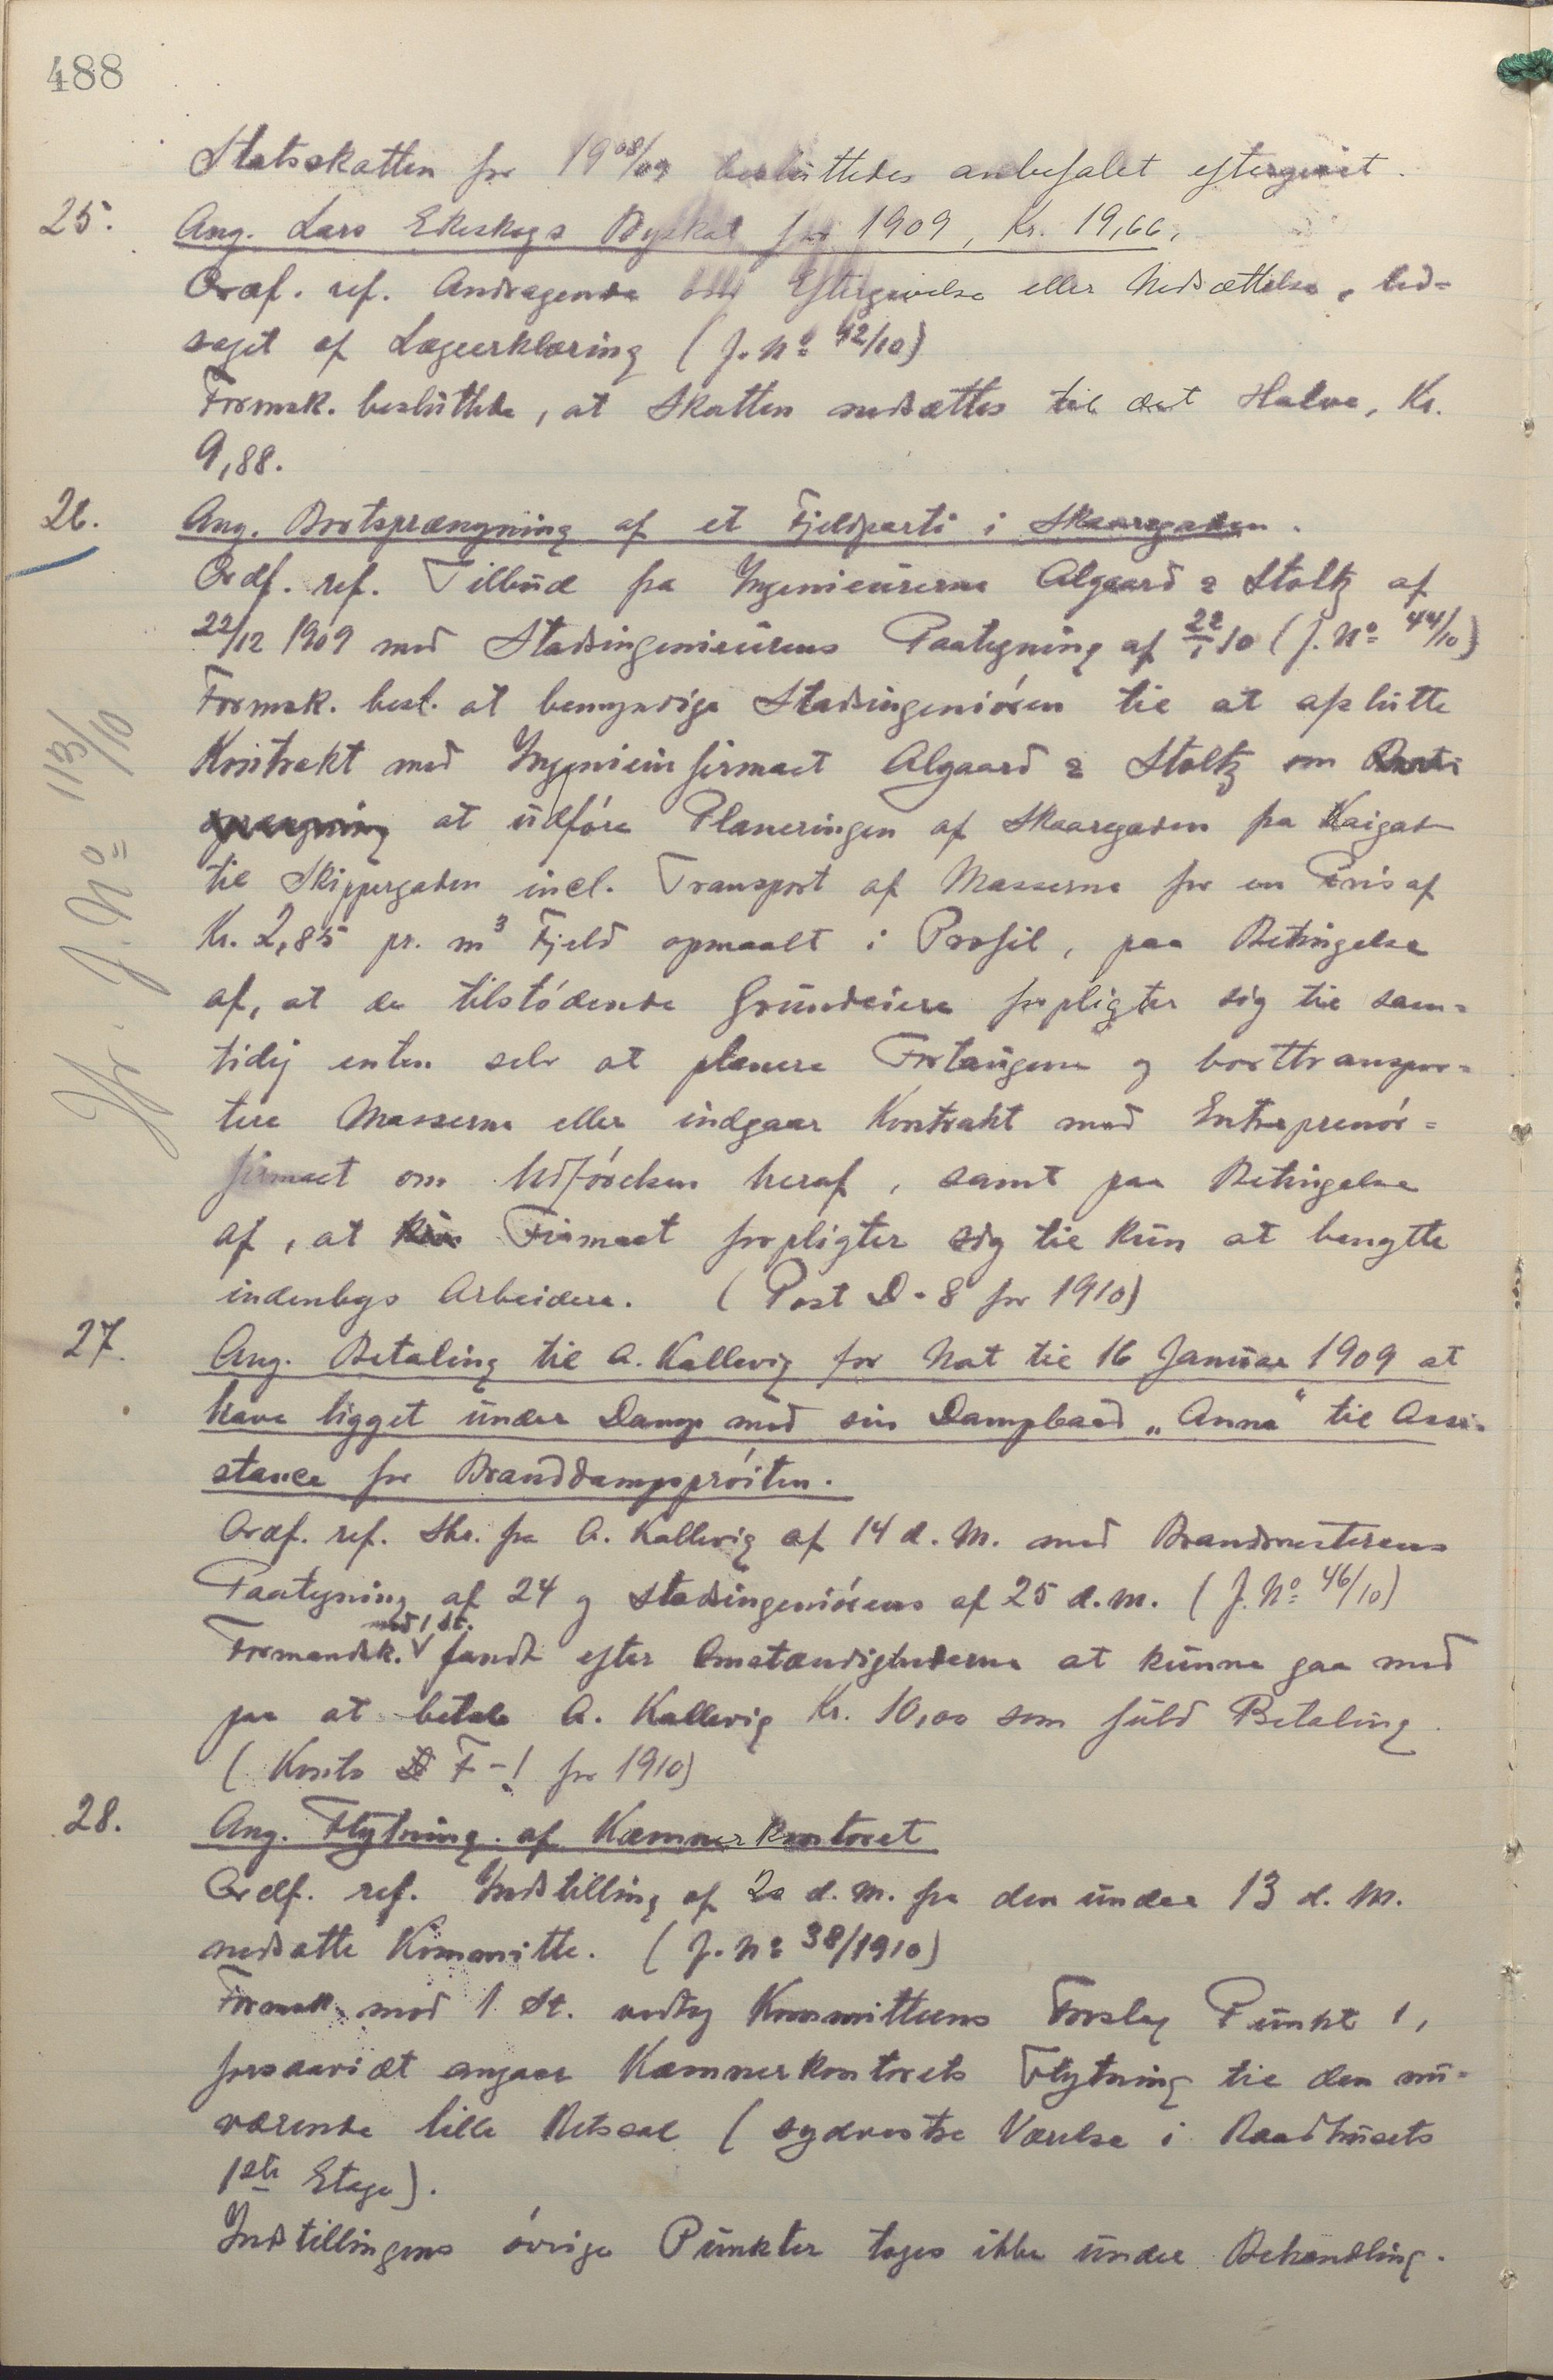 488
Statsskatten for 1908/09 besluttedes anbefalet eftergivet.
25. Ang. Lars Ekeskogs Byskat for 1909, Kr. 19,66.
Ordf. ref. Andragende om Eftergivelse eller Nedsættelse, led-
saget af Lægeerklæring (J. No 42/10)
Formsk. besluttede, at Skatten nedsættes til det Halve, Kr.
9,88.
26. Ang. Bortsprængning af et Fjeldparti i Skaaregaden.
Ordf. ref. Tilbud fra Ingeniøurerne Algaard & Stoltz af
22/12 1909 med Stadsingeniøurens Paategning af 22/1 10 (J. No 44/10)
Formsk. besl. at bemyndige Stadsingeniören til at afslutte
Kontrakt med Ingeniörfirmaet Algaard & Stoltz om Bort-
sprængning at udföre Planeringen af Skaaregaden fra Kaigad
til Skippergaden incl. Transport af Masserne for en Pris af
Kr. 2,85 pr. m3 Fjeld opmaalt i Profil, paa Betingelse
af, at de tilstödende Grundeiere forpligter sig til sam-
tidig enten selv at planere Fortaugene og borttranspor-
tere Masserne eller indgaar Kontrakt med Entreprenör-
firmaet om Udförelsen heraf, samt paa Betingelse
af, at kun Firmaet forpligter sig til kun at benytte
indenbys Arbeidere. (Post D-8 for 1910)
Jfr. J. No 113/10
27. Ang. Betaling til A. Kallevig for Nat til 16 Januar 1909 at
have ligget under Damp med sin Dampbaad „Anna“ til Assi-
stance for Branddampspröiten.
Ordf. ref. Skr. fra A. Kallevig af 14 d. M. med Brandmesterens
Paategning af 24 og Stadsingeniörens af 25 d. m. (J. No 46/10)
mod 1 st.
Formandsk. V fandt efter Omstændighederne at kunne gaa med
paa at betale A. Kallevig Kr. 10,00 som fuld Betaling.
(Konto D F-1 for 1910)
28. Ang. Flytning af Kæmnerkontoret
Ordf. ref. Indstilling af 20 d. M. fra den under 13 d. M.
nedsatte Kommitte. (J. No 38/1910)
Formsk. mod 1 St. vedtog Kommitteens Forslag Punkt 1,
forsaavidt angaar Kæmnerkontorets Flytning til den nu-
værende lille Retssal (sydvestre Værelse i Raadhusets
1ste Etage).
Indstillingens övrige Punkter toges ikke under Behandling.